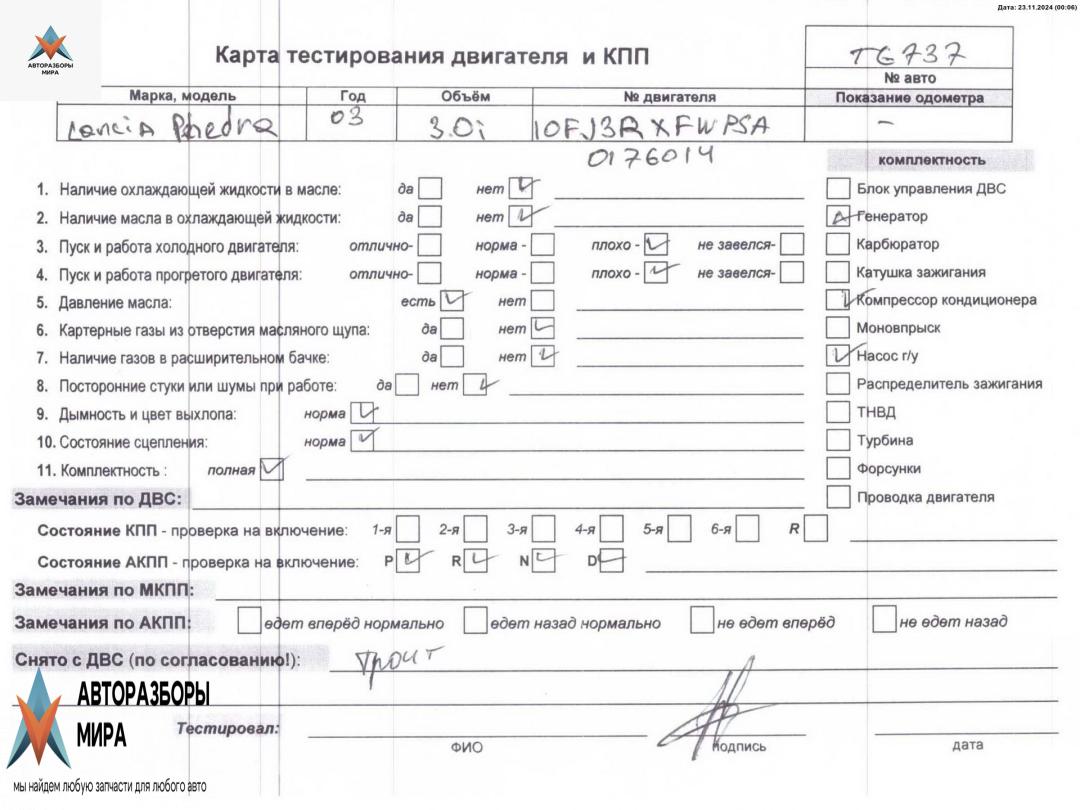 Дата: 23.11.2024 (00:06)
АВТОРАЗБОРЫ
МИРА
Карта тестирования двигателя и КПП
TG737
№ авто
Марка, модель Год Объём № двигателя Показание одометра
Lancia Phedra 03 3.0i 10FJ3RXFWPSA -
0176014
комплектность
1. Наличие охлаждающей жидкости в масле: да нет Блок управления ДВС
2. Наличие масла в охлаждающей жидкости: да нет Генератор
3. Пуск и работа холодного двигателя: отлично- норма - плохо - не завелся- Карбюратор
4. Пуск и работа прогретого двигателя: отлично- норма - плохо - не завелся- Катушка зажигания
5. Давление масла: есть нет Компрессор кондиционера
6. Картерные газы из отверстия масляного щупа: да нет Моновпрыск
7. Наличие газов в расширительном бачке: да нет Насос г/у
8. Посторонние стуки или шумы при работе: да нет Распределитель зажигания
9. Дымность и цвет выхлопа: норма ТНВД
10. Состояние сцепления: норма Турбина
11. Комплектность : полная Форсунки
Замечания по ДВС: Проводка двигателя
Состояние КПП - проверка на включение: 1-я 2-я 3-я 4-я 5-я 6-я R
Состояние АКПП - проверка на включение: P R N D
Замечания по МКПП:
Замечания по АКПП: едет вперёд нормально едет назад нормально не едет вперёд не едет назад
Снято с ДВС (по согласованию!): троит
АВТОРАЗБОРЫ
МИРА
Тестировал:
ФИО подпись дата
мы найдем любую запчасти для любого авто